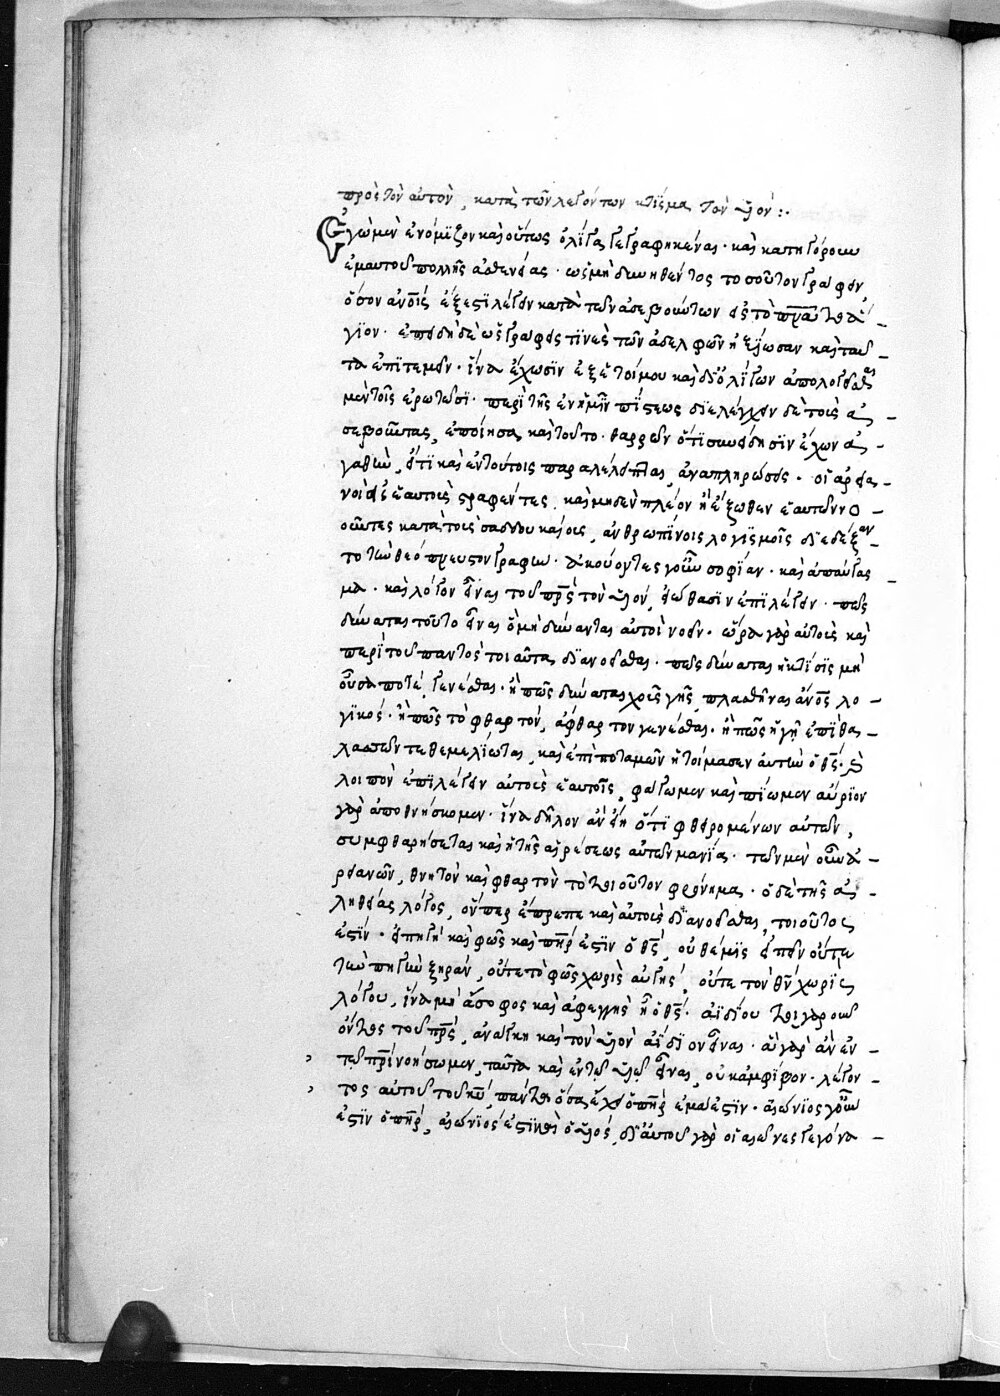 πρὸς τὸν αὐτὸν, κατὰ τῶν λεγόντων κτίσμα τὸν υἱόν :·
Ἐγὼ μὲν ἐνόμιζον καὶ οὕτως ὀλίγα γεγραφηκέναι· καὶ κατηγόρουν
ἐμαυτοῦ πολλῆς ἀσθενείας· ὡς μὴ δυνηθέντος τοσοῦτον γράφειν
ὅσον ἀνοῖς ἔξεστι λέγειν κατὰ τῶν ἀσεβούντων εἰς τὸ πνα τὸ ἅ-
γιον· ἐπειδὴ δὲ ὡς γράφεις τινὲς τῶν ἀδελφῶν ἠξίωσαν καὶ ταῦ-
τα ἐπιτεμεῖν· ἵνα ἔχωσιν ἐξ ἑτοίμου καὶ δι' ὀλίγων ἀπολογεῖσθαι
μὲν τοῖς ἐρωτῶσι· περὶ τῆς ἐν ἡμῖν πίστεως διελέγχειν δὲ τοὺς ἀ-
σεβοῦντας, ἐποίησα καὶ τοῦτο· θαρρῶν ὅτι συνείδησιν ἔχων ἀ-
γαθὴν, εἴ τι καὶ ἐν τούτοις παραλέλειπται, ἀναπληρώσεις· οἱ ἀρεια-
νοὶ εἰς ἑαυτοὺς στραφέντες, καὶ μηδὲν πλέον ἢ ἔξωθεν ἑαυτῶν νο-
οῦντες κατὰ τοὺς σαδδουκαίους, ἀνθρωπίνοις λογισμοῖς διεδέξαν-
το τὴν θεόπνευστον γραφὴν· ἀκούοντες γοῦν σοφίαν· καὶ ἀπαύγασ-
μα· καὶ λόγον εἶναι τοῦ πρς τὸν υἱόν, εἰώθασιν ἐπιλέγειν· πῶς
δύναται τοῦτο εἶναι ὃ μὴ δύνανται αὐτοὶ νοεῖν· ὥρα γὰρ αὐτοὺς καὶ
περὶ τοῦ παντὸς τοιαῦτα διανοεῖσθαι· πῶς δύναται ἡ κτίσις μὴ
οὖσα ποτὲ, γενέσθαι· ἢ πῶς δύναται χοῦς γῆς πλασθῆναι ἄνος λο-
γικός· ἢ πῶς τὸ φθαρτόν, ἄφθαρτον γενέσθαι· ἢ πῶς ἡ γῆ ἐπὶ θα-
λασσῶν τεθεμελίωται, καὶ ἐπὶ ποταμῶν ἡτοίμασεν αὐτὴν ὁ θς·
λοιπὸν ἐπιλέγειν αὐτοὺς ἑαυτοῖς, φάγωμεν καὶ πίωμεν αὔριον
γὰρ ἀποθνήσκομεν· ἵνα δῆλον ἂν εἴη ὅτι φθειρομένων αὐτῶν,
συμφθαρήσεται καὶ ἡ τῆς αἱρέσεως αὐτῶν μανία· τῶν μὲν οὖν ἀ-
ρειανῶν, θνητὸν καὶ φθαρτὸν τὸ τοιοῦτον φρόνημα· ὁ δὲ τῆς ἀ-
ληθείας λόγος, ὅνπερ ἔπρεπε καὶ αὐτοὺς διανοεῖσθαι, τοιοῦτος
ἐστίν· εἰ πηγὴ καὶ φῶς καὶ πηρ ἐστὶν ὁ θς, οὐ θέμις εἰπεῖν οὔτε
τὴν πηγὴν ξηρὰν, οὔτε τὸ φῶς χωρὶς αὐγῆς, οὔτε τὸν θν χωρὶς
λόγου, ἵνα μὴ ἄσοφος καὶ ἀφεγγὴς ᾖ ὁ θς· ἀϊδίου τοιγαροῦν
ὄντος τοῦ πρς, ἀνάγκη καὶ τὸν υἱὸν ἀΐδιον εἶναι· ἃ γὰρ ἂν ἐν
τῷ πρὶ νοήσωμεν, ταῦτα καὶ ἐν τῷ υἱῷ εἶναι, οὐκ ἀμφίβολον· λέγον-
τος αὐτοῦ τοῦ κυ, πάντα ὅσα ἔχει ὁ πηρ ἐμά ἐστιν· αἰώνιος γοῦν
ἐστὶν ὁ πηρ, αἰώνιός ἐστι καὶ ὁ υἱός, δι' αὐτοῦ γὰρ οἱ αἰῶνες γεγόνα-